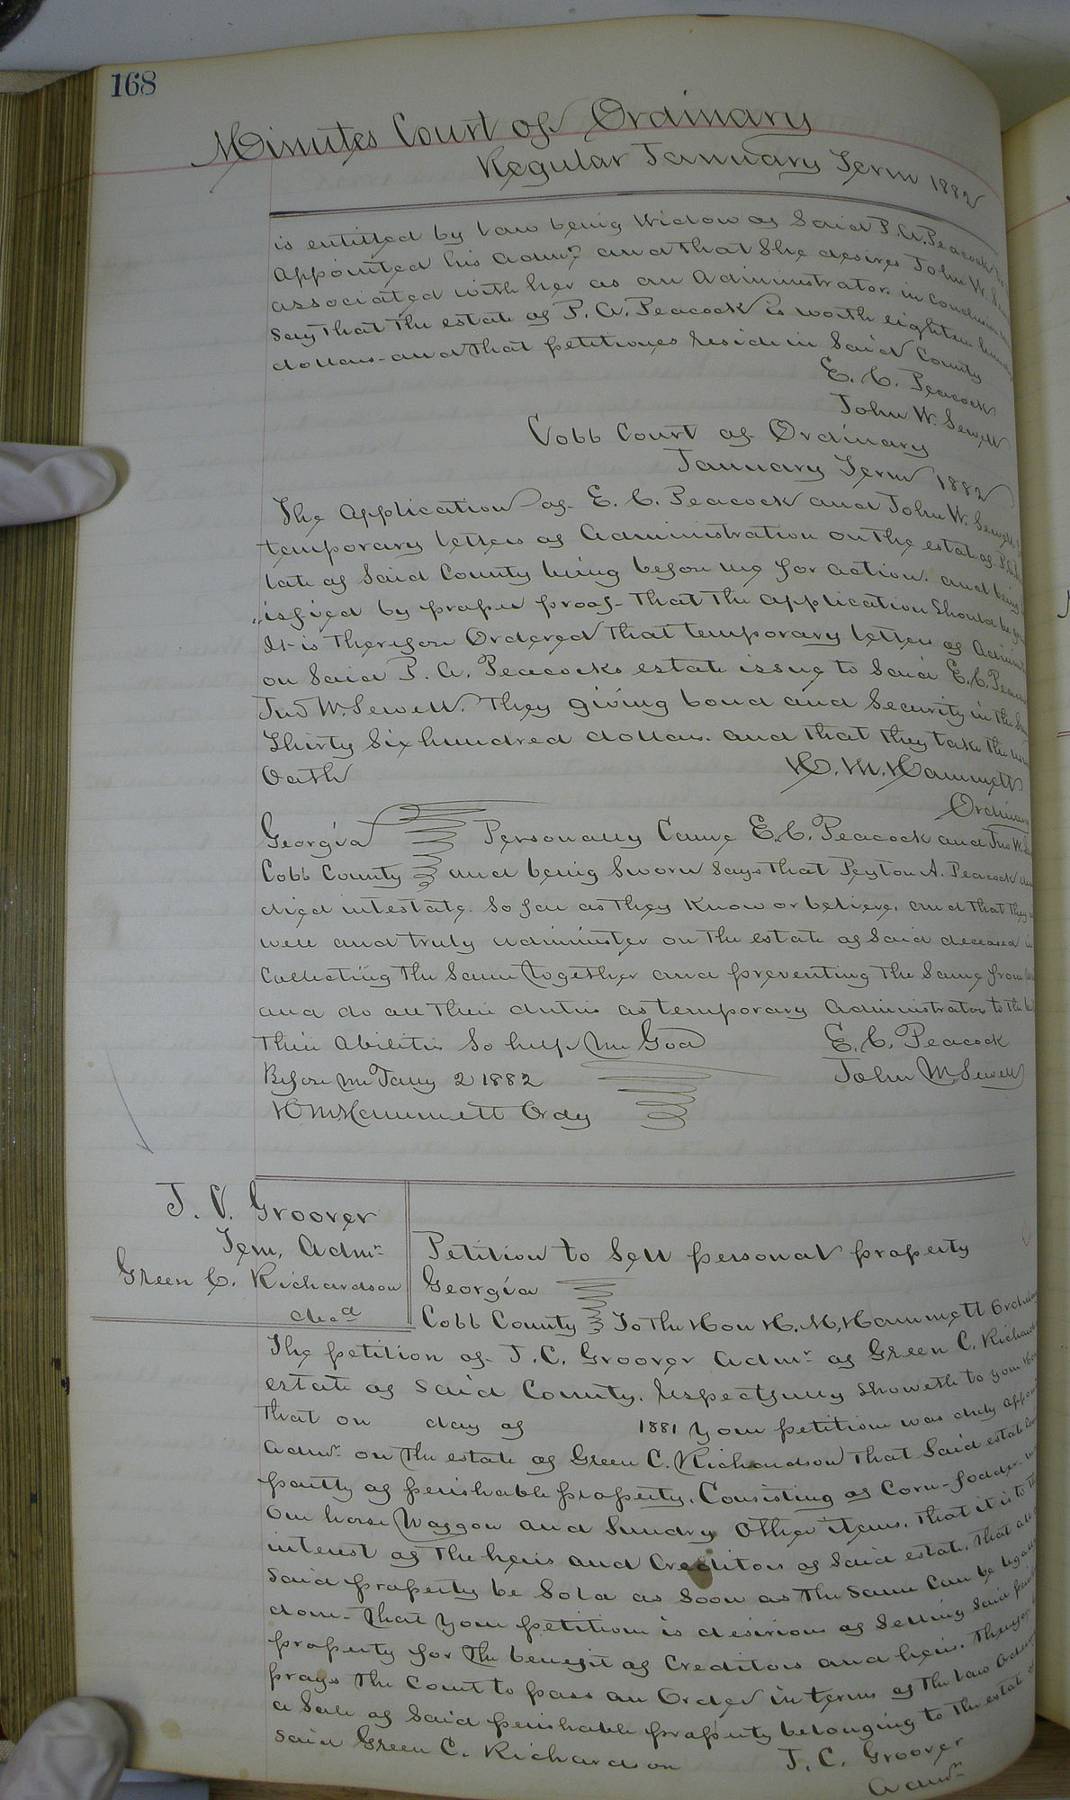 168
Minutes Court of Ordinary
Regular January Term 1882
is entitled by law being Widow of Said P. A. Peacock to be
appointed his admr and that She desires John W.
associated with her as an Administrator. in conclusion
Say That The estate of P. A. Peacock is worth eighteen hundred
dollars and that petitioners reside in Said County
E. C. Peacock
John W. Sewell
Cobb Court of Ordinary
January Term 1882
The Application of E. C. Peacock and John W. Sewell
temporary letters of Administration on the estate of
late of Said County being before me for action. and being
isfied by proper proof that the application Should be
It is Therefore Ordered that temporary letters of
on Said P. A. Peacocks estate issue to Said E. C.
Jno W. Sewell. They giving bond and Security in the
Thirty Six hundred dollars. and that they take the
Oath
H. M. Hammett
Ordinary
Georgia Personally Came E. C. Peacock and Jno W.
Cobb County and being Sworn Says that Peyton A. Peacock
died intestate. So far as They Know or believe. and that they
well and truly administer on the estate of Said deceased
Collecting The Same together and preventing The Same from
and do all Their duties as temporary Administrators to the
Their Abilities So help Me God
E. C. Peacock
John W Sewell
Before me Jany 2 1882
H M Hammett Ordy
J. C. Groover
Tem. Admr
Green C. Richardson
decd
Petition to Sell personal property
Georgia
Cobb County To The Hon H. M. Hammett
The petition of J. C. Groover Admr of Green C.
estate of Said County. Respectfully Showeth to your
That on day of 1881 your petitioner was duly
Admr on the estate of Green C. Richardson That Said estate
partly of perishable property. Consisting of Corn-fodder
One horse Waggon and Sundry Other items. That it is to
interest of The heirs and Creditors of Said estate. That all
Said property be Sold as Soon as The Same Can be
done. That Your petitioner is desirious of Selling Said
property for The benefit of Creditors and heirs.
prays The Court to pass an Order in terms of The law
a Sale of Said perishable property belonging to The estate
Said Green C. Richardson
J. C. Groover
Admr